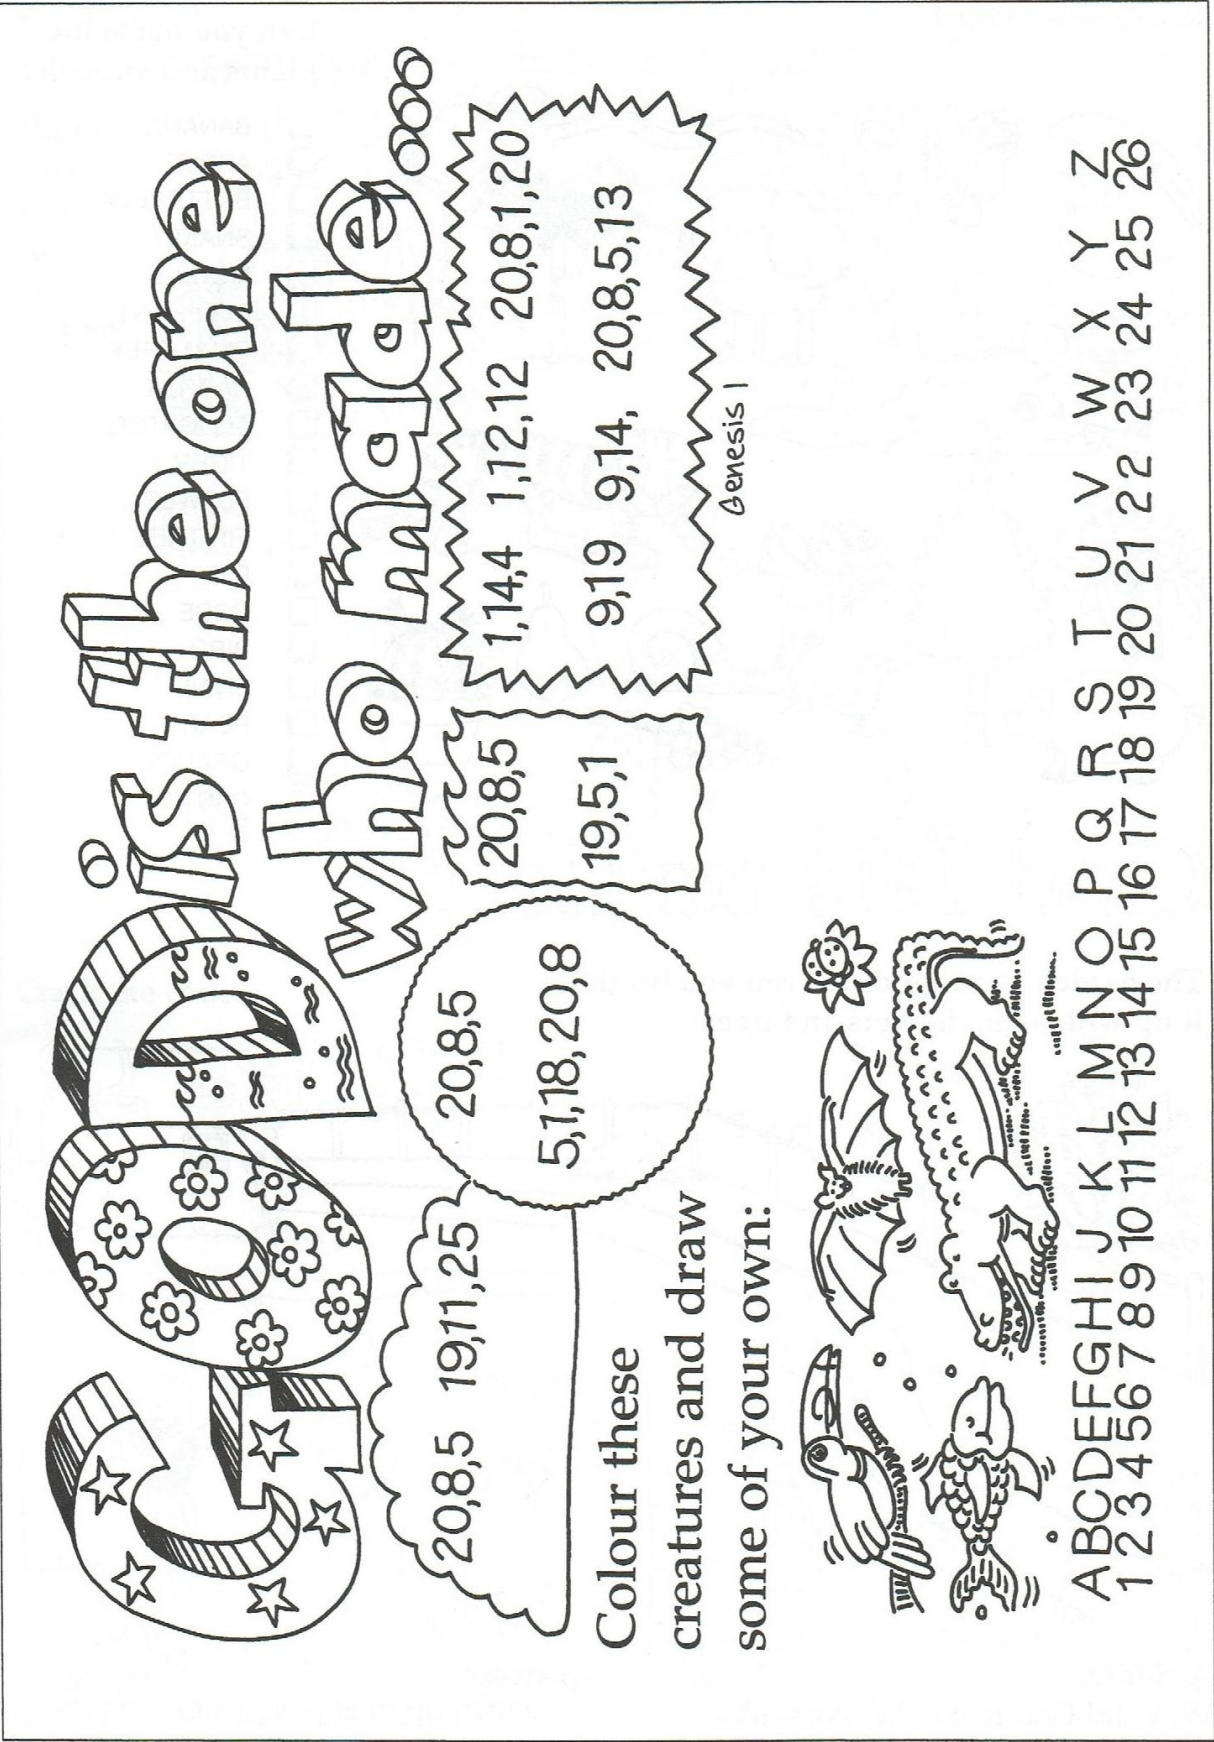 GOD is the one
who made...
20,8,5 19,11,25
20,8,5
5,1,18,20,8
20,8,5
19,5,1
1,14,4 1,12,12 20,8,1,20
9,19 9,14, 20,8,5,13
Genesis 1
Colour these
creatures and draw
some of your own:
A B C D E F G H I J K L M N O P Q R S T U V W X Y Z
1 2 3 4 5 6 7 8 9 10 11 12 13 14 15 16 17 18 19 20 21 22 23 24 25 26